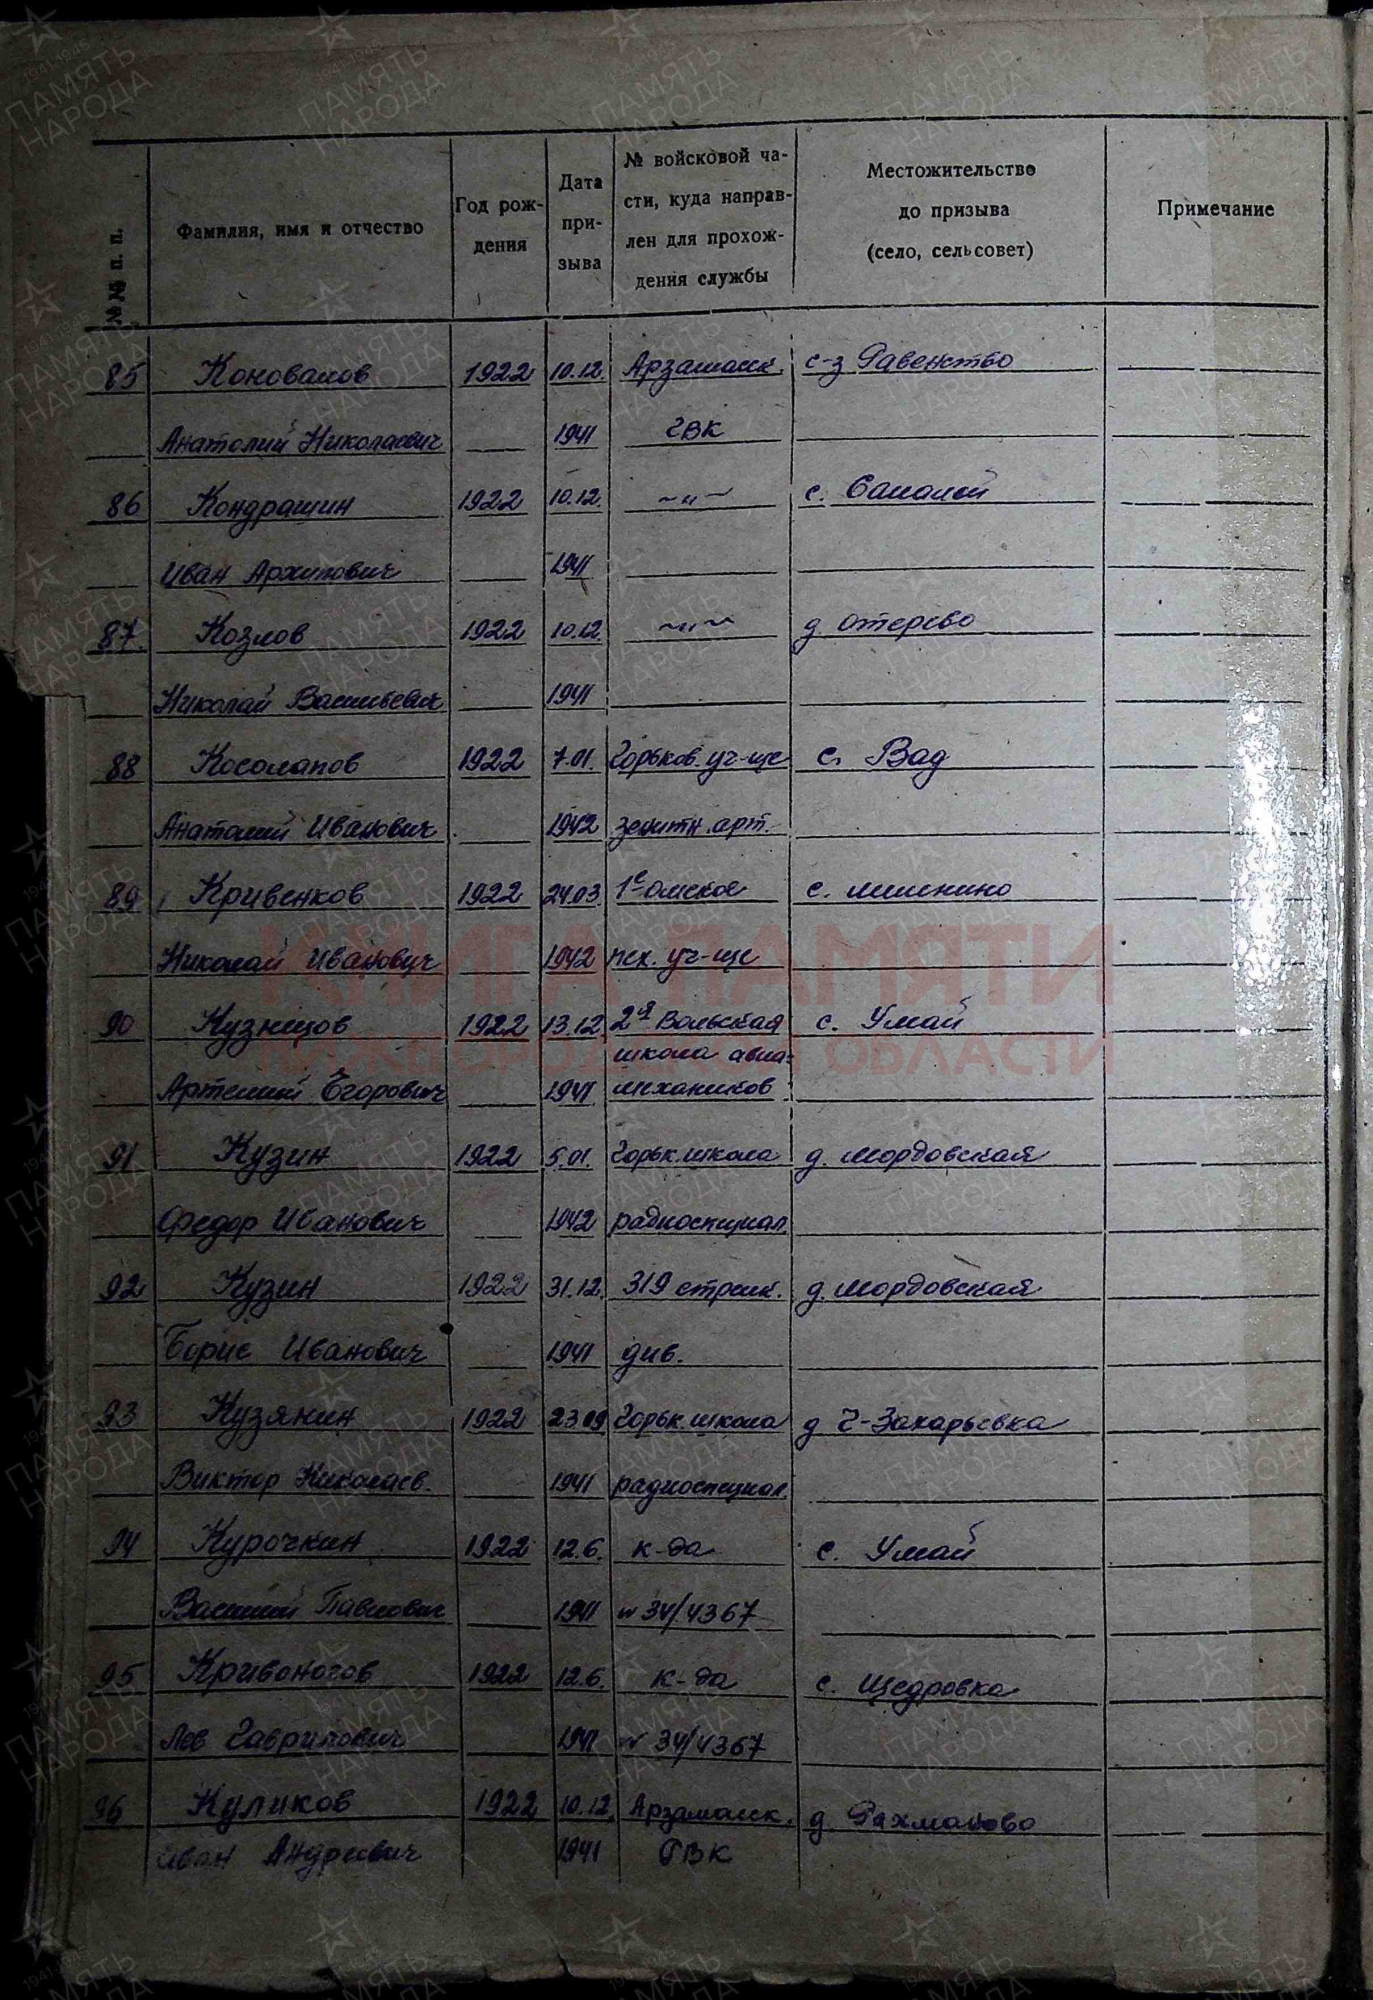 №№ п. п. Фамилия, имя и отчество Год рож- дения Дата при- зыва № войсковой ча- сти, куда направ- лен для прохож- дения службы Местожительство до призыва (село, сельсовет) Примечание
85 Коновалов 1922 10.12. Арзамасск. с-з Равенство
Анатолий Николаевич 1941 ГВК
86 Кондрашин 1922 10.12. ~"~ с.
Иван Архипович 1941
87. Козлов 1922 10.12. ~"~ д Отерево
Николай Васильевич 1941
88 Косолапов 1922 7.01. Горьков. уч-ще с. Вад
Анатолий Иванович 1942 зенитн. арт.
89 Кривенков 1922 24.03. 1е Омское с. Лишенино
Николай Иванович 1942 пех. уч-ще
90 Кузнецов 1922 13.12 2я Вольская с. Умай
школа авиа-
Артемий Егорович 1941 механиков
91 Кузин 1922 5.01. Горьк. школа д. Мордовская
Федор Иванович 1942 радиоспециал.
92 Кузин 1922 31.12. 319 стрелк. д. Мордовская
Борис Иванович 1941 див.
93 Кузянин 1922 23.09. Горьк. школа д Г-Захарьевка
Виктор Николаев. 1941 радиоспециал.
94 Курочкин 1922 12.6. к-да с. Умай
Василий Павлович 1941 № 34/4367
95 Кривоногов 1922 12.6. к-да с. Щедровка
Лев Гаврилович 1941 № 34/4367
96 Куликов 1922 10.12. Арзамасск. д. Рахманово
Иван Андреевич 1941 РВК
КНИГА ПАМЯТИ
НИЖЕГОРОДСКОЙ ОБЛАСТИ
1941-1945
ПАМЯТЬ
НАРОДА